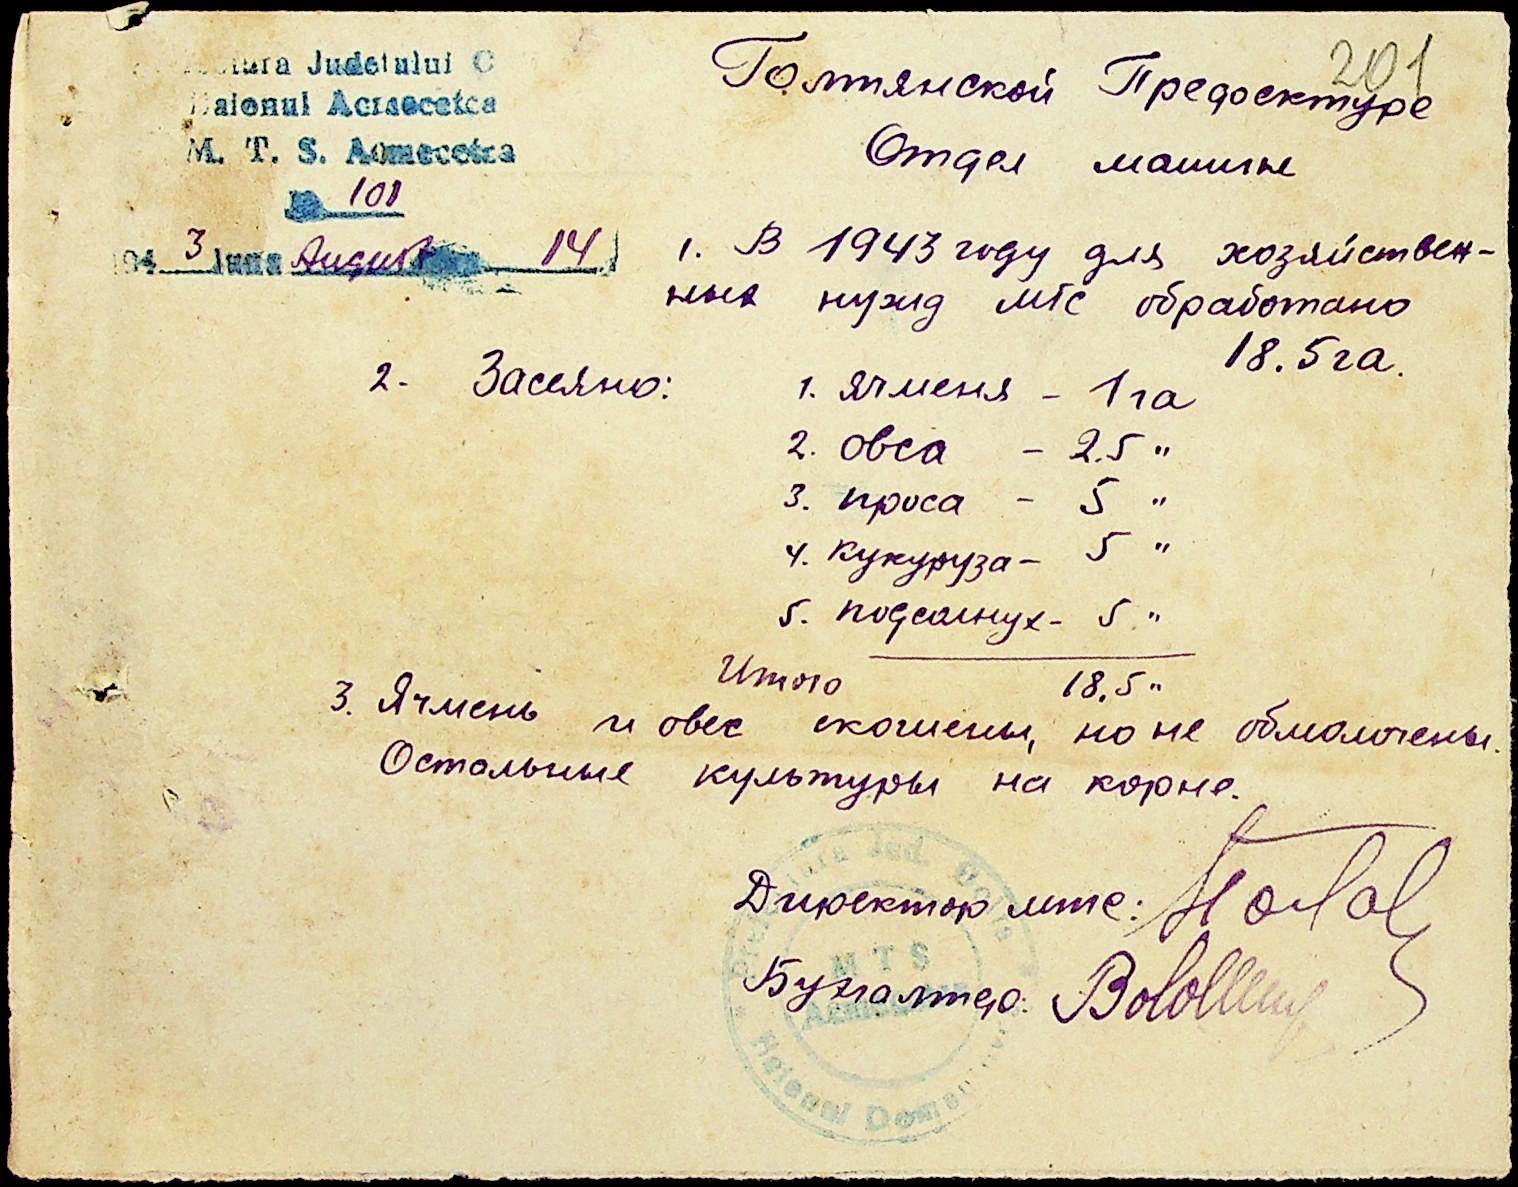 Judetului
Raionul
M. T. S.
№ 101
194 3 luna August 14
201
Голтянской Префектуре
Отдел машины
1. В 1943 году для хозяйствен-
ных нужд МТС обработано
18.5 га.
2. Засеяно:
1. Ячменя - 1 га
2. овса - 2.5 "
3. проса - 5 "
4. кукуруза - 5 "
5. подсолнух - 5 "
Итого 18.5 "
3. Ячмень и овес скошены, но не обмолочены.
Остальные культуры на корне.
Директор мтс:
Бухгалтер:
Jud.
MTS
Raionul